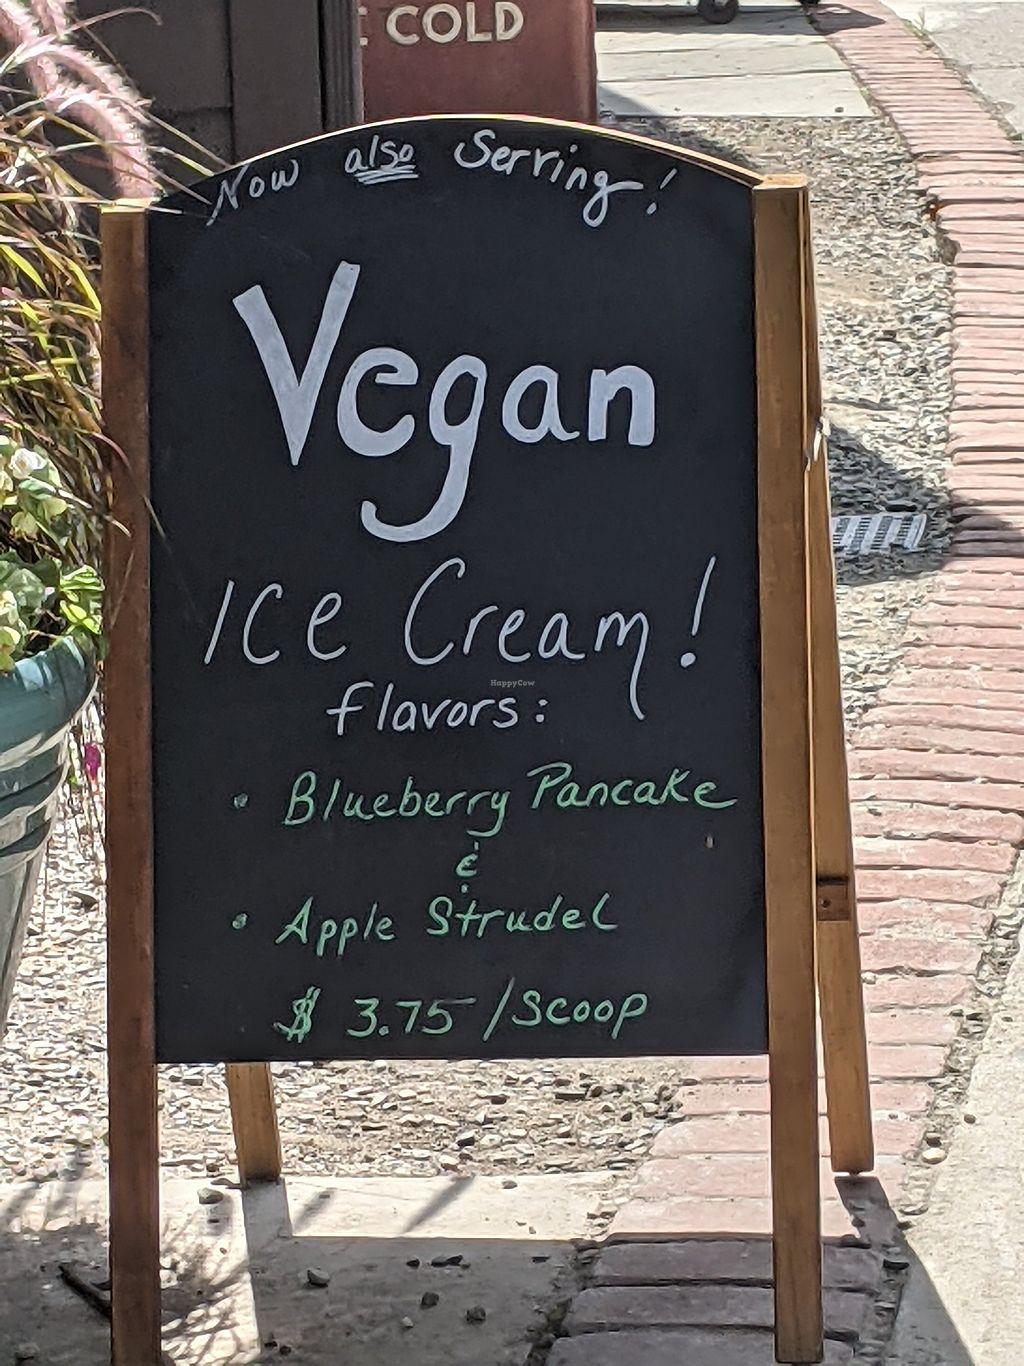 : COLD
Now also Serving!
Vegan
Ice Cream!
flavors:
HappyCow
• Blueberry Pancake
&
• Apple Strudel
$ 3.75 /scoop